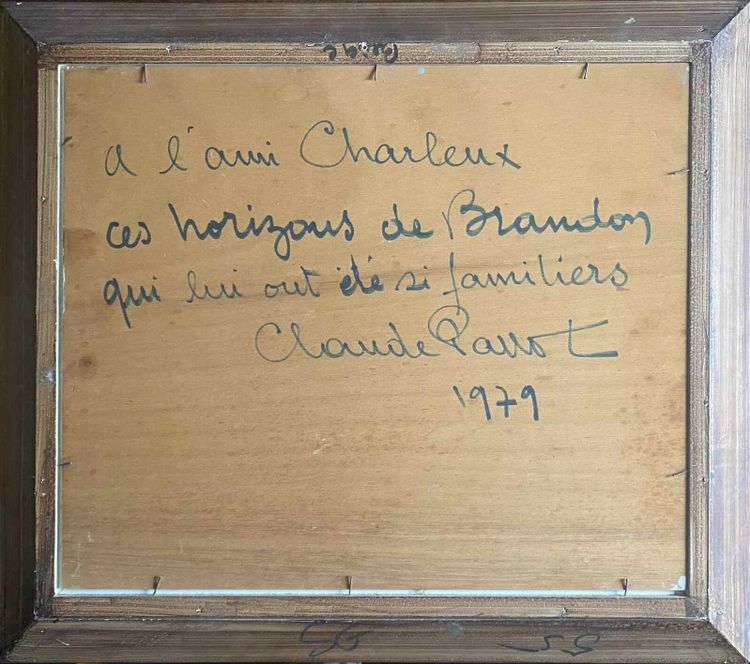 A l'ami Charleux
ces horizons de Brandon
qui lui ont été si familiers
Claude Parrot
1979
55